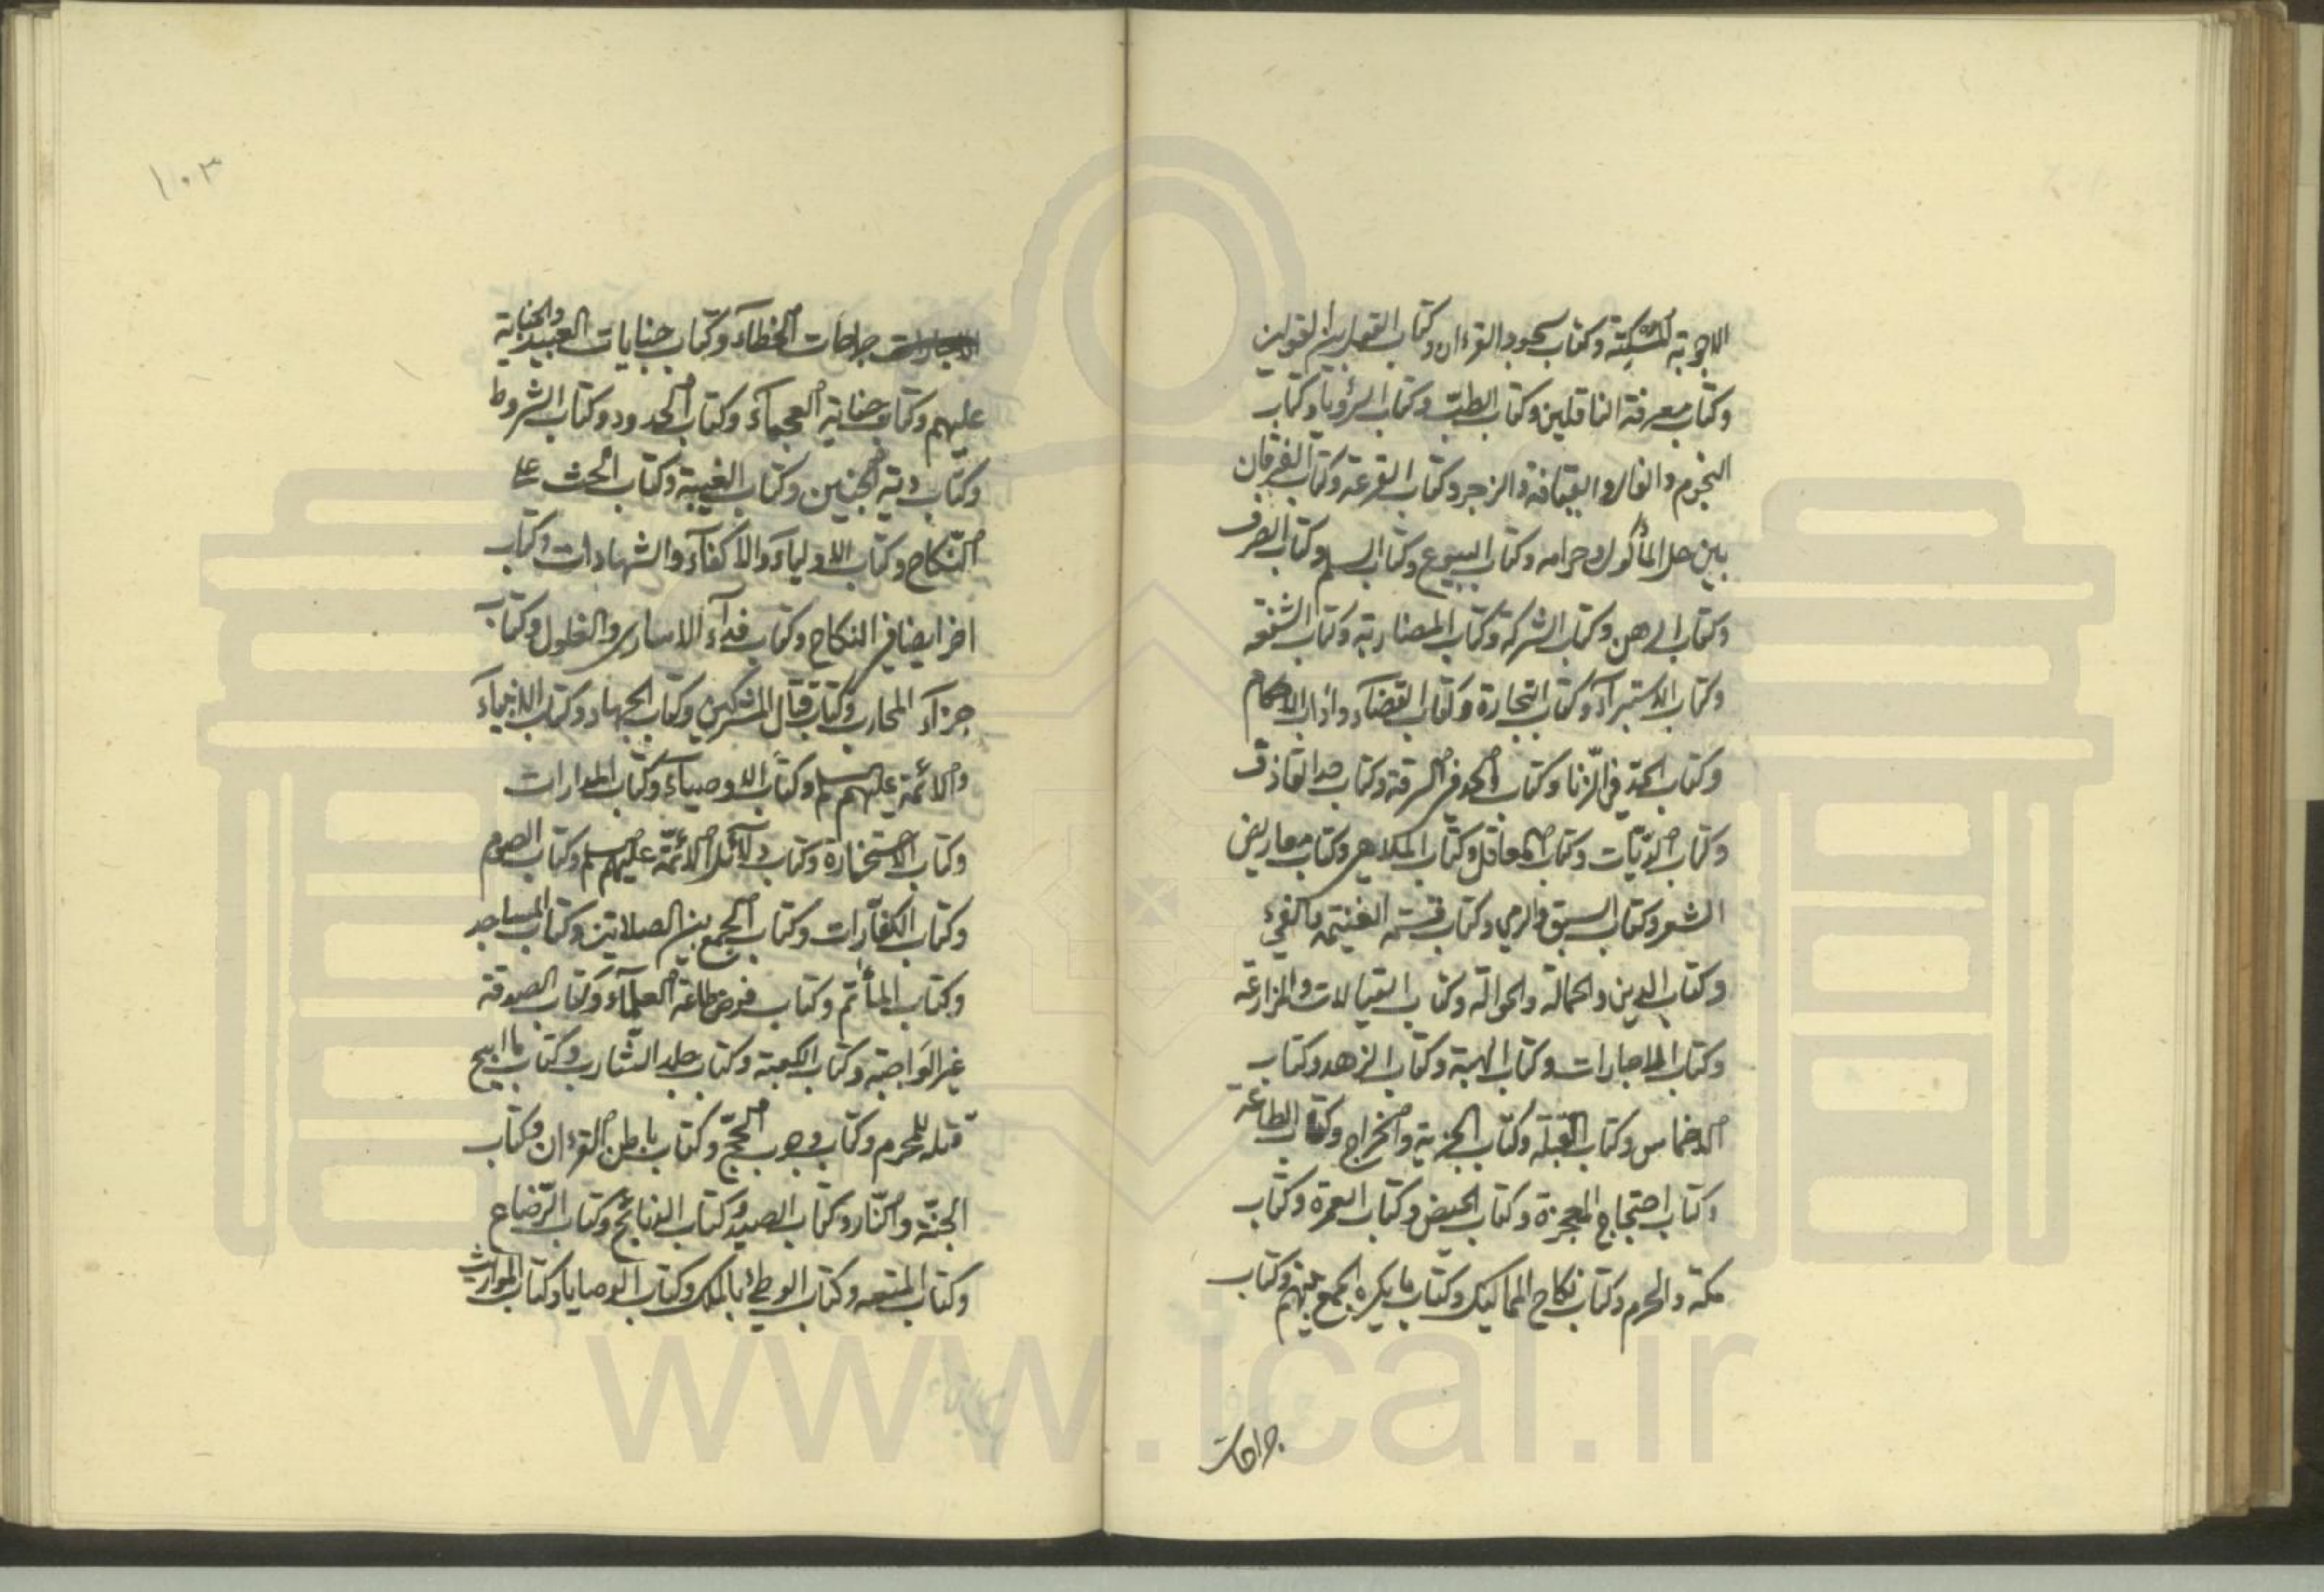 الاجوبة المسكتة وكتاب سجود القرءان وكتاب القول بين القولين
وكتاب معرفة الناقلين وكتاب الطب وكتاب الرؤيا وكتاب
النجوم والفال والقيافة والزجر وكتاب القرعة وكتاب الفرقان
بين حل المأكول وحرامه وكتاب البيوع وكتاب السلم وكتاب الصرف
وكتاب الرهن وكتاب الشركة وكتاب المضاربة وكتاب الشفعة
وكتاب الاستبرآء وكتاب التجارة وكتاب القضآء واداب الاحكام
وكتاب الحد في الزنا وكتاب الحد في السرقة وكتاب حد القاذف
وكتاب الديات وكتاب المعاقل وكتاب الملاهي وكتاب معاريض
الشعر وكتاب السبق والرمي وكتاب قسمة الغنيمة والفيء
وكتاب الدين والحمالة والحوالة وكتاب القبالات والمزارعة
وكتاب الاجارات وكتاب الهبة وكتاب الزهد وكتاب
الاخماس وكتاب القبلة وكتاب الجزية والخراج وكتاب الطاعة
وكتاب احتجاج المعجزة وكتاب الحيض وكتاب العمرة وكتاب
مكة والحرم وكتاب نكاح المماليك وكتاب ما يكره الجمع بينهم وكتاب
جراحات
١٠٣
جراحات الخطآء وكتاب جنايات العبيد والجناية
عليهم وكتاب جناية العجمآء وكتاب الحدود وكتاب الشروط
وكتاب دية الجنين وكتاب الغيبة وكتاب الحث على
النكاح وكتاب الاوليآء والاكفآء والشهادات وكتاب
اخر ايضا في النكاح وكتاب فدآء الاسارى والغلول وكتاب
جزآء المحارب وكتاب قتال المشركين وكتاب الجهاد وكتاب الانبيآء
والائمة عليهم السلم وكتاب الاوصيآء وكتاب المدارات
وكتاب الاستخارة وكتاب دلآئل الائمة عليهم السلم وكتاب الصوم
وكتاب الكفارات وكتاب الجمع بين الصلاتين وكتاب المساجد
وكتاب المأتم وكتاب فرض طاعة العلمآء وكتاب الصدقة
غير الواجبة وكتاب الكعبة وكتاب جلد الشارب وكتاب ما ابيح
قتله للمحرم وكتاب وجوب الحج وكتاب باطن القرءان وكتاب
الجنة والنار وكتاب الصيد وكتاب الذبائح وكتاب الرضاع
وكتاب المتعه وكتاب الوطئ بالملك وكتاب الوصايا وكتاب المواريث
www.ical.ir